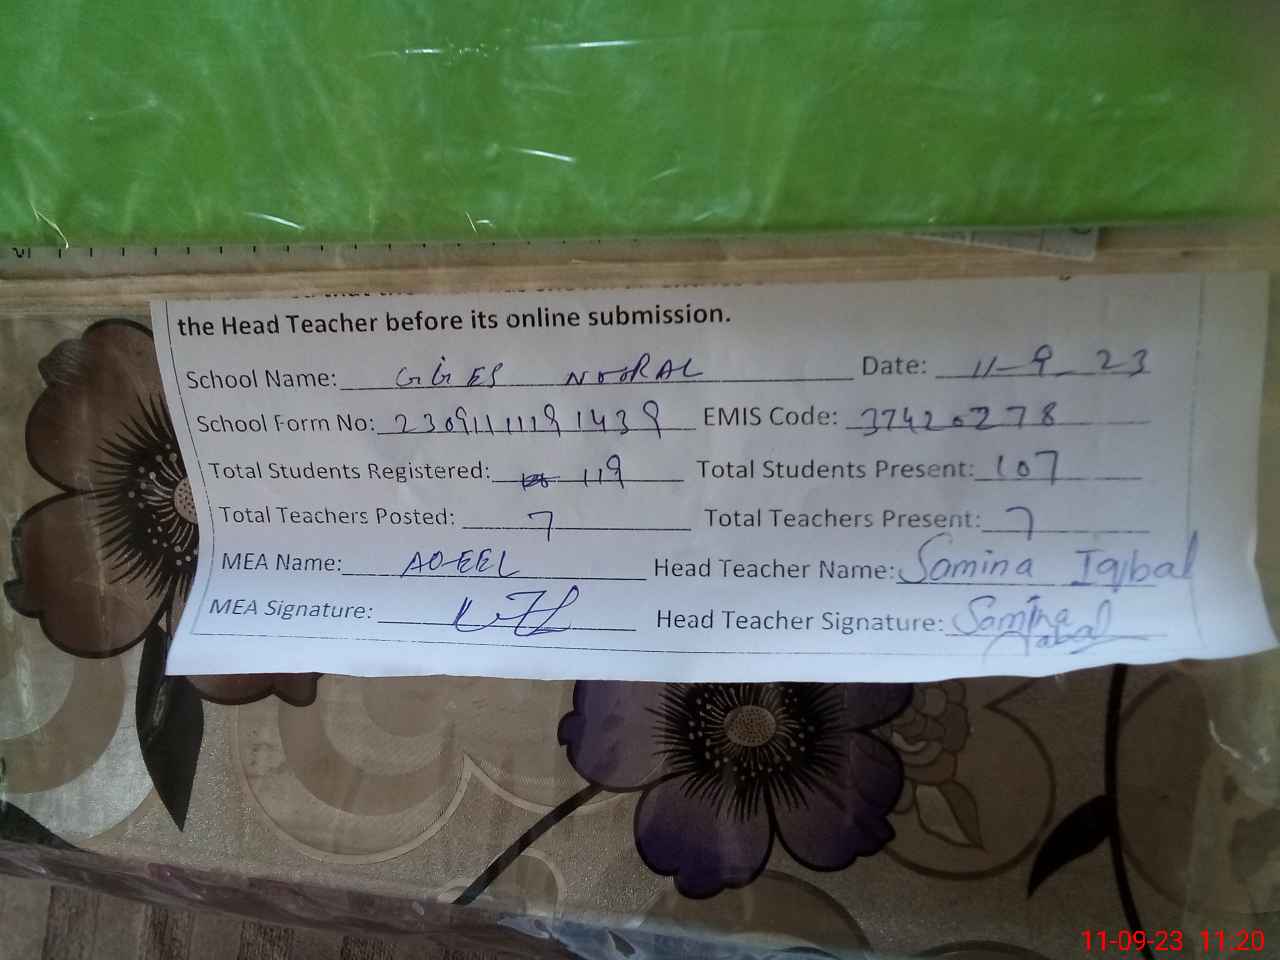 the Head Teacher before its online submission.
School Name: GGES NOORAL Date: 11-9-23
School Form No: 2309111191439 EMIS Code: 37420278
Total Students Registered: 119 Total Students Present: 107
Total Teachers Posted: 7 Total Teachers Present: 7
MEA Name: AQEEL Head Teacher Name: Samina Iqbal
MEA Signature: Head Teacher Signature: Samina Iqbal
11-09-23 11:20